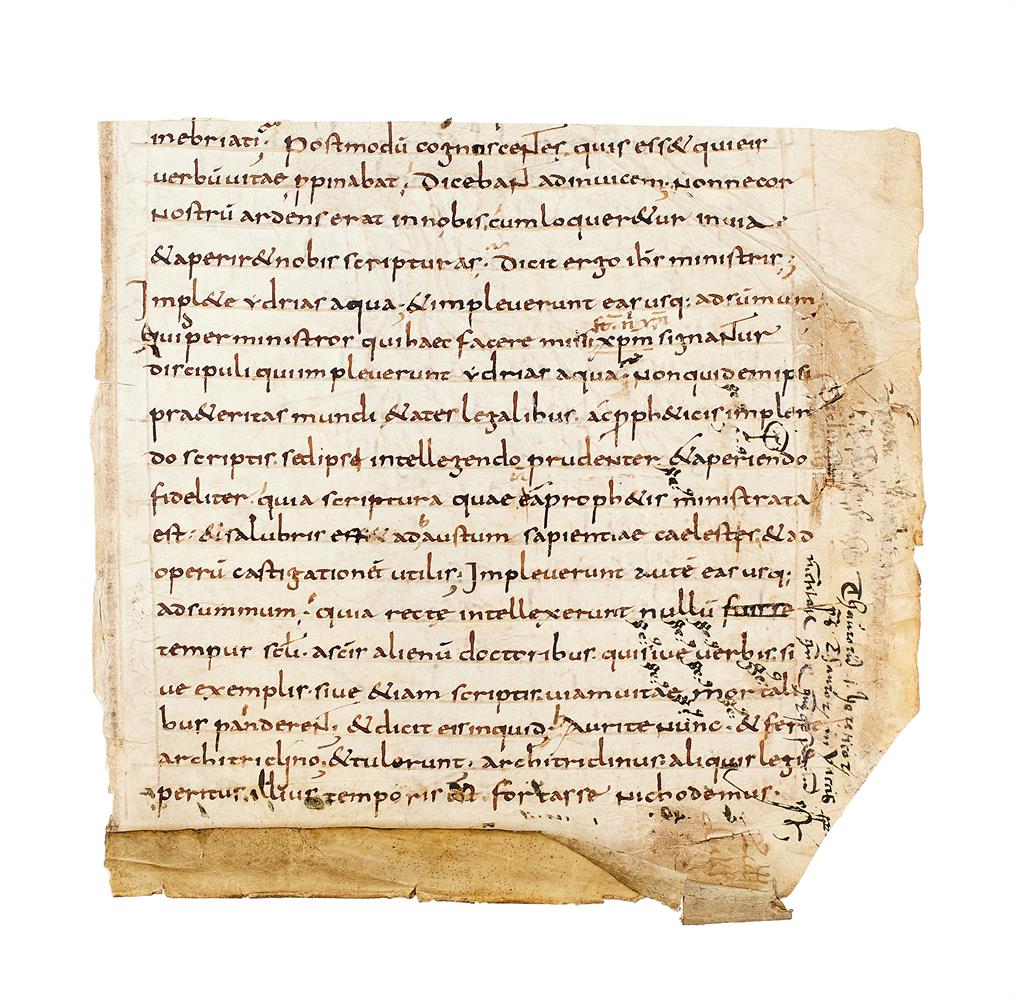 inebriati. Postmodū cognoscentes quis ess& qui eis
verbū vitae ppinabat. Dicebant adinvicem. Nonne cor
nostrū ardens erat innobis, cum loquer&ur invia.
& aperir& nobis scripturas. Dicit ergo ihs ministris;
Impl&e ydrias aqua. & impleverunt eas usq; adsūmum
qui per ministros qui haec facere iussi xpm signantur
discipuli qui impleverunt ydrias aqua. Non quidem ipsi
pra&eritas mundi &ates legalibus. ac pph&icis implen
do scriptis. sed ipse intellegendo prudenter &aperiendo
fideliter. quia scriptura quae eā proph&is ministrata
est. & salubris adaustum sapientiae caelestis, & ad
operū castigationē utilis. Impleverunt autē eas usq;
adsummum. quia recte intellexerunt nullū fuisse
tempus scli. a scis alienū doctoribus. qui sive verbis. si
ve exemplis. sive &iam scriptis. viam vitae mortali
bus panderent. & dicit eis inquid. aurite nunc. & ferte
architriclino. & tulerunt. architriclinus aliquis legis
peritus. illius temporis est. fortasse nichodemus.